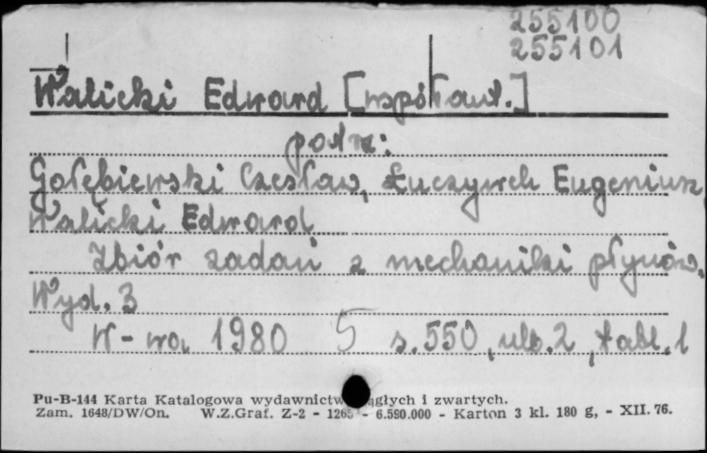 255100
255101
Walicki Edward [współaut.]
patrz:
Gołębiewski Czesław, Łuczywek Eugeniusz,
Walicki Edward
Zbiór zadań z mechaniki płynów.
Wyd. 3
W-wa 1980 5 s. 550, nlb. 2, tabl. 1
Pu-B-144 Karta Katalogowa wydawnictw ągłych i zwartych.
Zam. 1648/DW/On. W.Z.Graf. Z-2 - 1265 - 6.590.000 - Karton 3 kl. 180 g, - XII. 76.